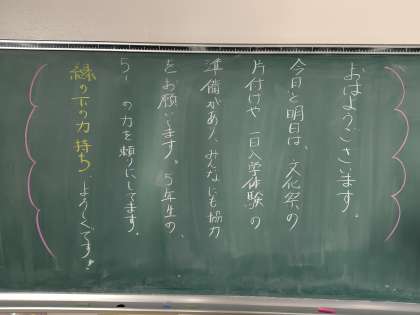 おはようございます。
今日と明日は、文化祭の
片付けや一日入学体験の
準備があり、みんなにも協力
をお願いします。5年生の、
5-　の力を頼りにしてます。
縁の下の力持ち、よろしくです!